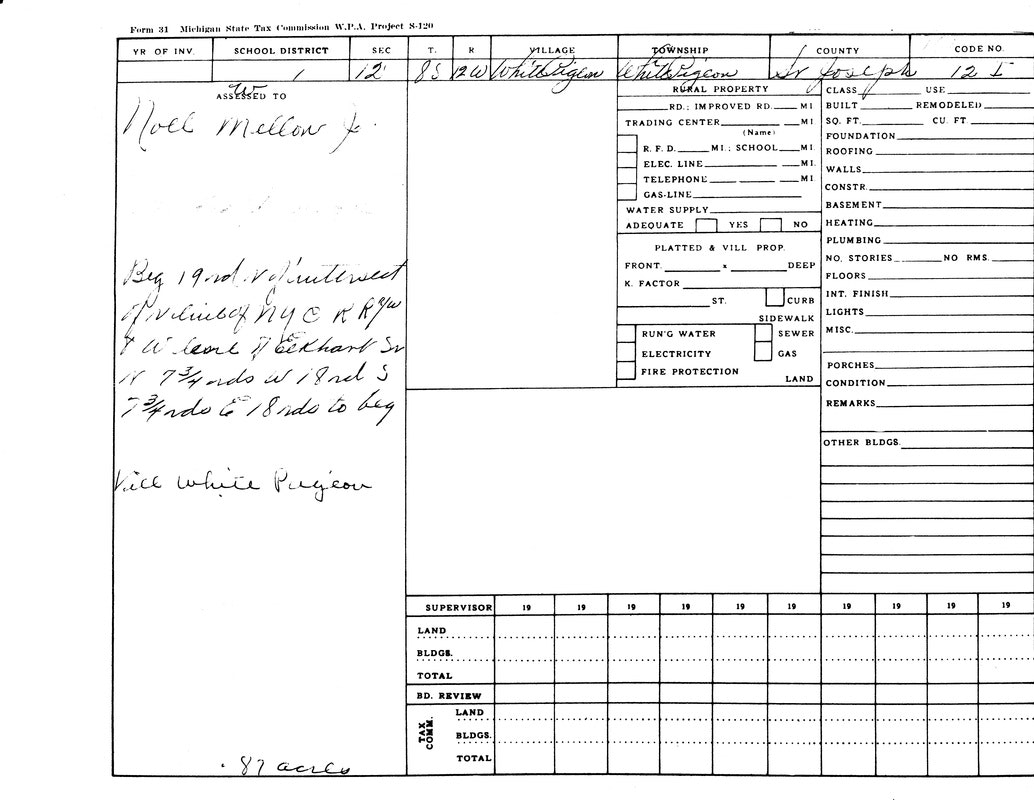 Form 31 Michigan State Tax Commission W.P.A. Project S-120
YR OF INV. SCHOOL DISTRICT SEC T. R VILLAGE TOWNSHIP COUNTY CODE NO.
1 12 8S 12W White Pigeon White Pigeon St Joseph 12 I
ASSESSED TO
W
Noel Mellow Jr.
Beg 19 rd N of intersect
of N line of NYC RR R/W
& W line of Eckhart Sr
N 7 3/4 rds W 18 rd S
7 3/4 rds E 18 rds to beg
Vill White Pigeon
.87 acres
RURAL PROPERTY
RD.; IMPROVED RD. MI
TRADING CENTER MI.
(Name)
R. F. D. MI.; SCHOOL MI.
ELEC. LINE MI.
TELEPHONE MI.
GAS-LINE
WATER SUPPLY
ADEQUATE YES NO
PLATTED & VILL PROP.
FRONT. x DEEP
K. FACTOR
ST. CURB
SIDEWALK
RUN'G WATER SEWER
ELECTRICITY GAS
FIRE PROTECTION
LAND
CLASS USE
BUILT REMODELED
SQ. FT. CU. FT.
FOUNDATION
ROOFING
WALLS
CONSTR.
BASEMENT
HEATING
PLUMBING
NO. STORIES NO RMS.
FLOORS
INT. FINISH
LIGHTS
MISC.
PORCHES
CONDITION
REMARKS
OTHER BLDGS.
SUPERVISOR 19 19 19 19 19 19 19 19 19 19
LAND
BLDGS.
TOTAL
BD. REVIEW
TAX COMM.
LAND
BLDGS.
TOTAL